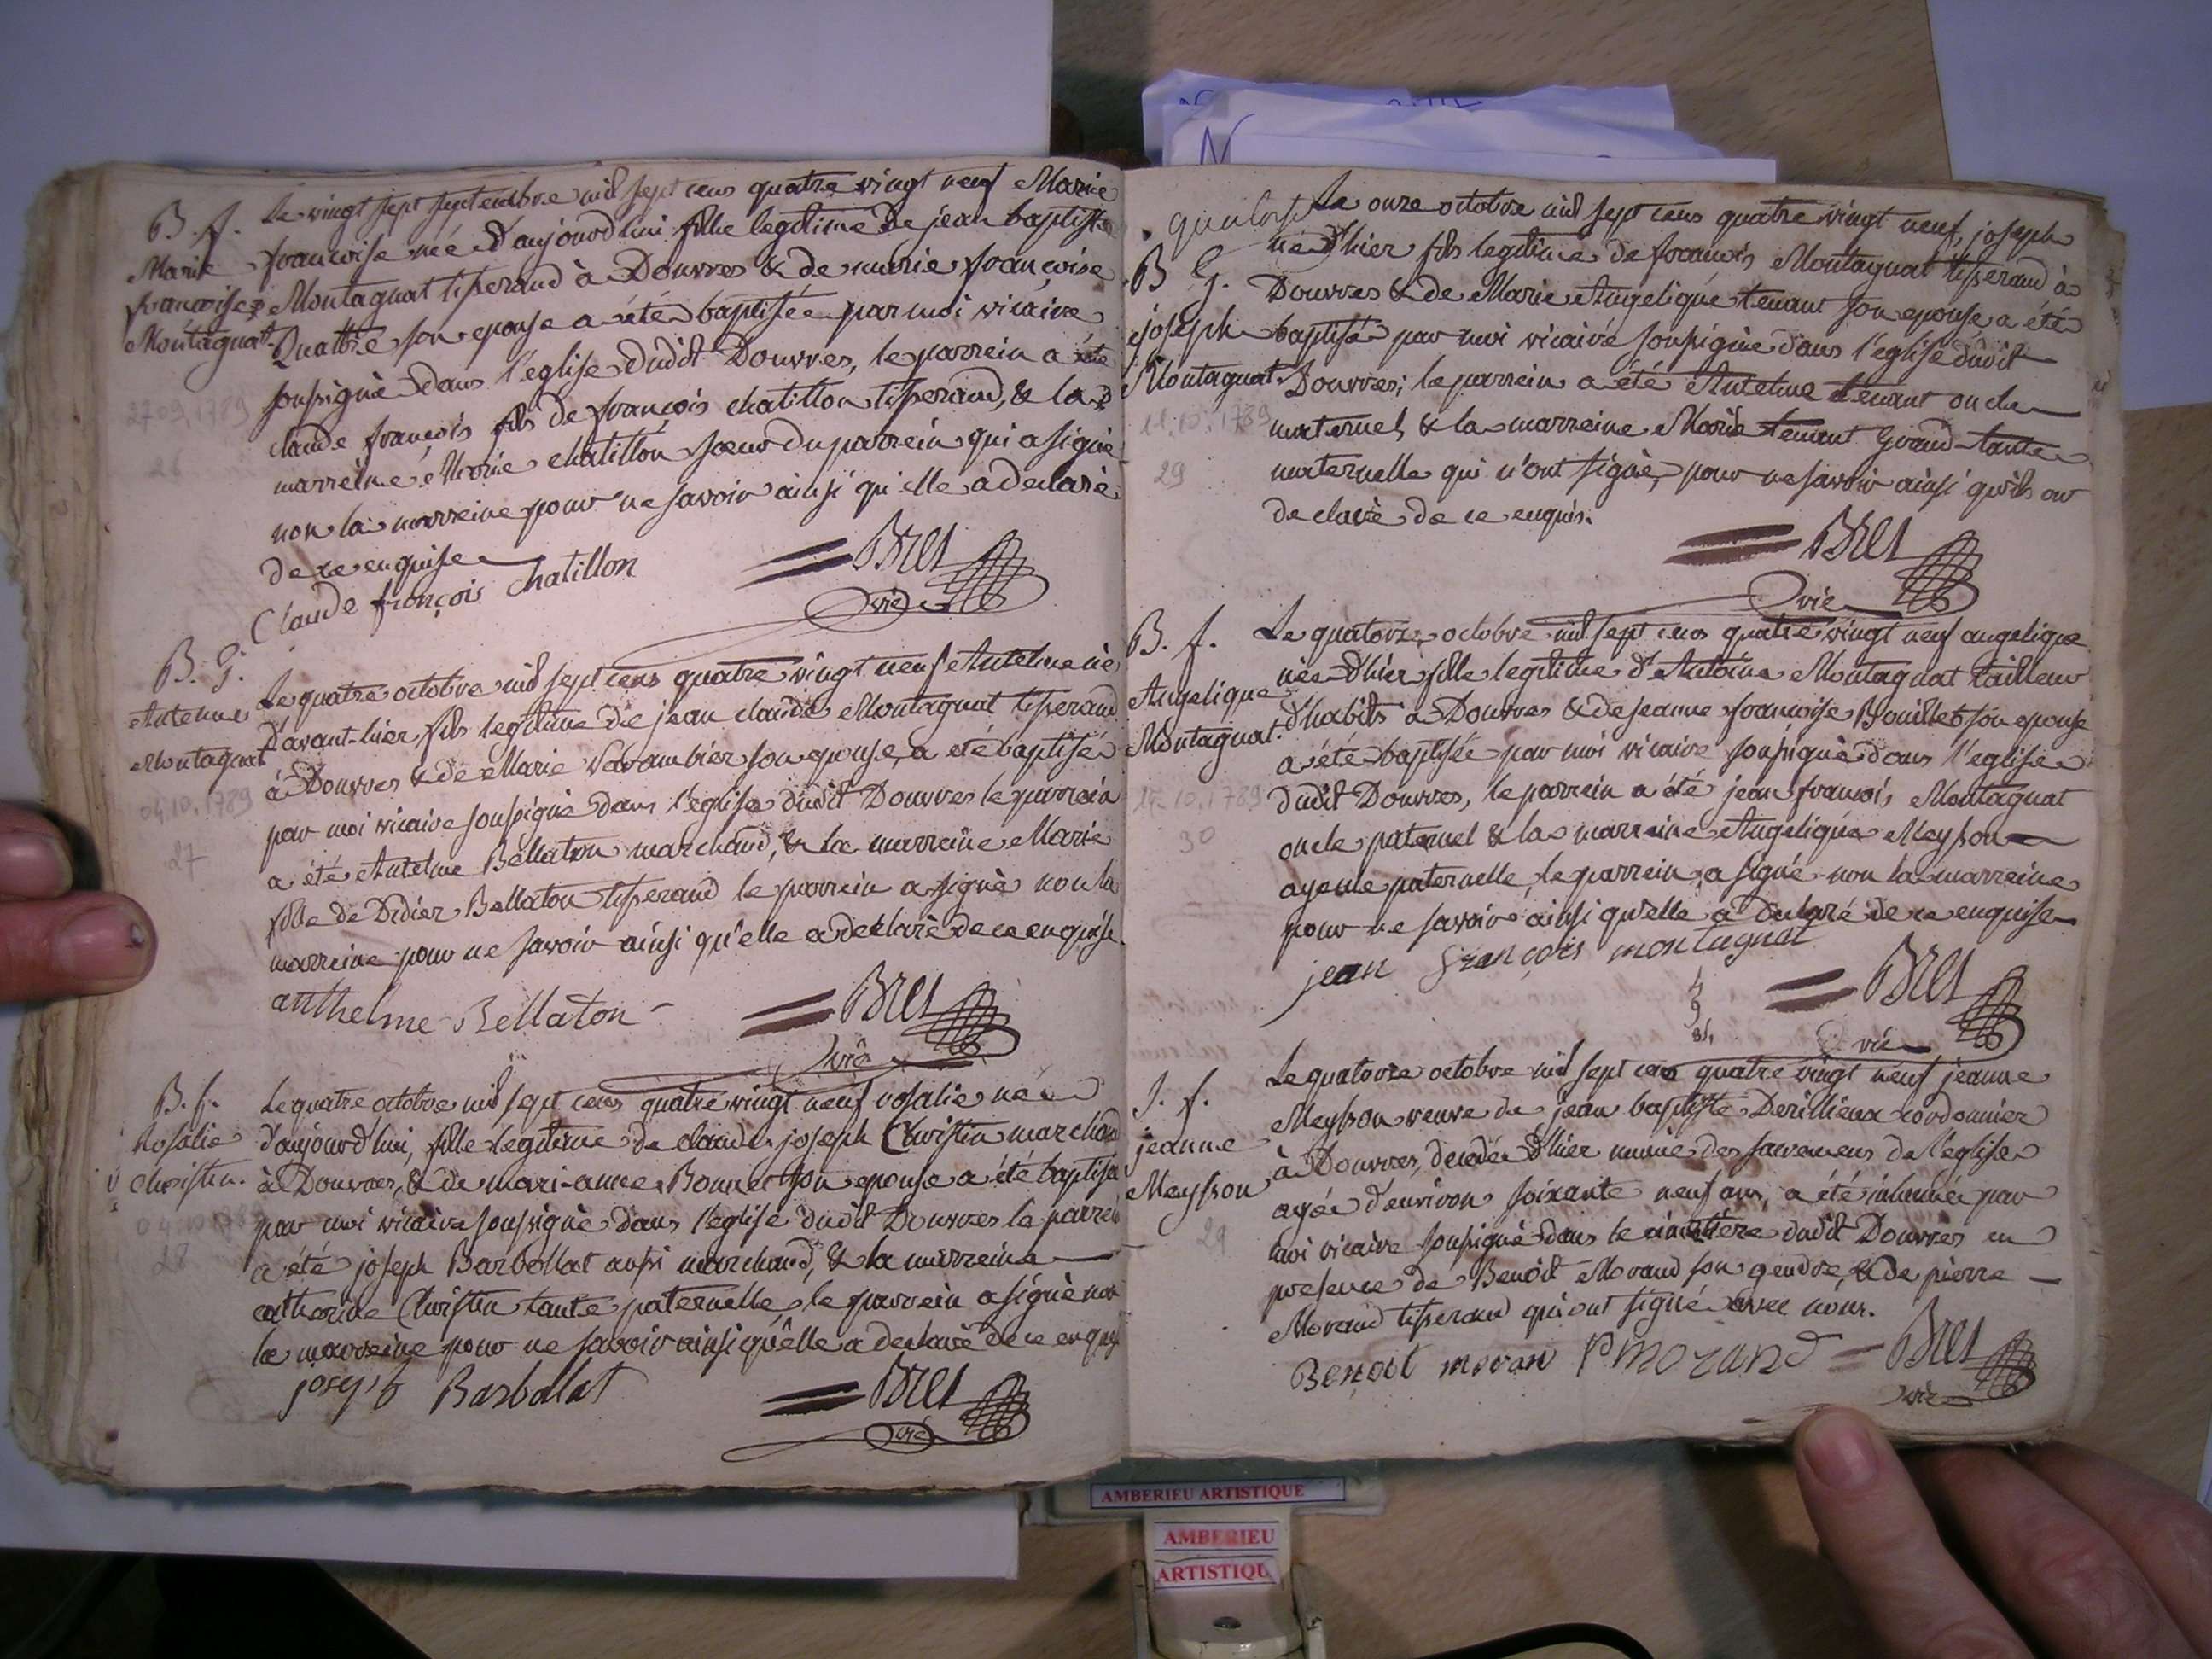 B. f.
Marie
françoise
Montagnat
27.09.1789
26
Le vingt sept septembre mil sept cens quatre vingt neuf Marie
françoise née d'aujourd'hui fille legitime de jean baptiste
Montagnat tisserand à Douvres & de marie françoise
Quattre son epouse a été baptisée par moi vicaire
soussigné dans l'eglise dudit Douvres, le parrein a été
claude françois fils de françois chatillon tisserand, & la
marreine Marie chatillon soeur du parrein qui a signé
non la marreine pour ne savoir ainsi qu'elle a declaré
de ce enquise
Claude françois chatillon
Bret
vic
B. G.
Antelme
Montagnat
04.10.1789
27
Le quatre octobre mil sept cens quatre vingt neuf Antelme né
d'avant-hier, fils legitime de jean claude Montagnat tisserand
à Douvres & de Marie Varambier son epouse, a été baptisé
par moi vicaire soussigné dans l'eglise dudit Douvres le parrein
a été Antelme Bellaton marchand, & la marreine Marie
fille de Didier Bellaton tisserand le parrein a signé non la
marreine pour ne savoir ainsi qu'elle a declaré de ce enquise
anthelme Bellaton
Bret
vic
B. f.
Rosalie
Christin.
04.10.1789
28
Le quatre octobre mil sept cens quatre vingt neuf rosalie née
d'aujourd'hui, fille legitime de claude joseph Christin marchand
à Douvres, & de mari-anne Bonnet son epouse a été baptisée
par moi vicaire soussigné dans l'eglise dudit Douvres le parrein
a été joseph Barbollat aussi marchand, & la marreine
catherine Christin tante paternelle, le parrein a signé non
la marreine pour ne savoir ainsi qu'elle a declaré de ce enquise
joseph Barbollat
Bret
vic
B G.
joseph
Montagnat
11.10.1789
29
Le onze octobre mil sept cens quatre vingt neuf, joseph
né d'hier fils legitime de françois Montagnat tisserand à
Douvres & de Marie Angelique tenant son epouse a été
baptisé par moi vicaire soussigné dans l'eglise dudit
Douvres; le parrein a été Antelme tenant oncle
maternel & la marreine Marie tenant Grand-tante
maternelle qui n'ont signé, pour ne savoir ainsi qu'ils ont
declaré de ce enquis.
Bret
vic
B. f.
Angelique
Montagnat.
14.10.1789
30
Le quatorze octobre mil sept cens quatre vingt neuf angelique
née d'hier fille legitime d'Antoine Montagnat tailleur
d'habits à Douvres & de jeanne françoise Bouillet son epouse
a été baptisée par moi vicaire soussigné dans l'eglise
dudit Douvres, le parrein a été jean françois Montagnat
oncle paternel & la marreine Angelique Meysson
ayeule paternelle, le parrein a signé non la marreine
pour ne savoir ainsi qu'elle a declaré de ce enquise
jean françois montagnat
Bret
vic
S. f.
jeanne
Meysson
29
Le quatorze octobre mil sept cens quatre vingt neuf jeanne
Meysson veuve de jean baptiste Derillieux cordonnier
à Douvres, decedée d'hier munie des sacremens de l'eglise
agée d'environ soixante neuf ans, a été inhumée par
moi vicaire soussigné dans le cimetiere dudit Douvres en
presence de Benoit Morand son gendre, & de pierre
Morand tisserand qui ont signé avec nous.
Benoit moran P morand
Bret
vic
AMBERIEU ARTISTIQUE
AMBERIEU
ARTISTIQU